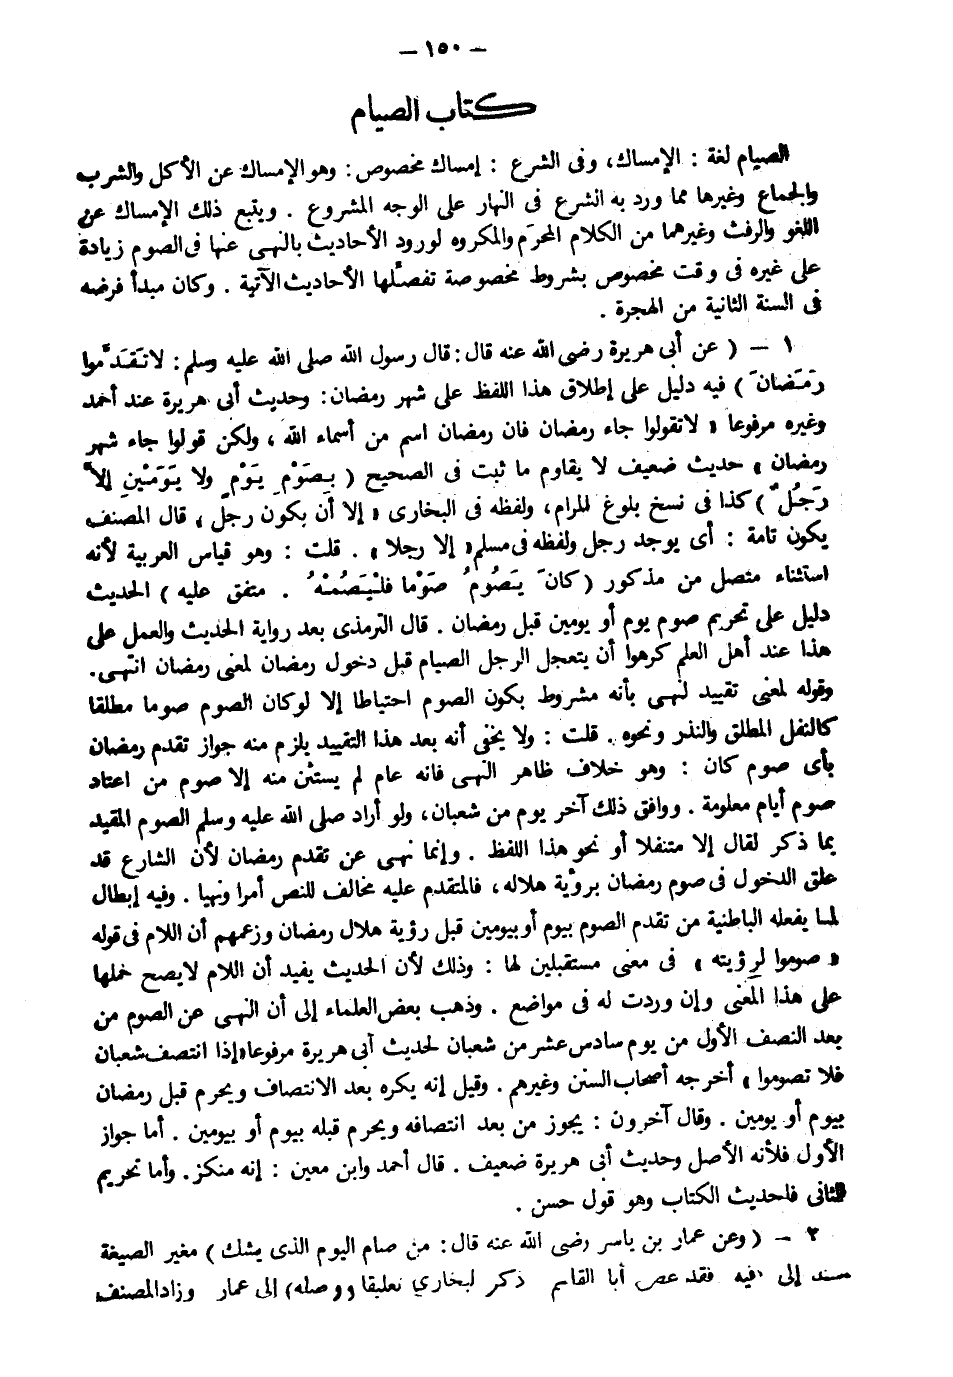 — ١٥٠ —
كتاب الصيام
الصيام لغة : الإمساك، وفى الشرع : إمساك مخصوص : وهو الإمساك عن الأكل والشرب
والجماع وغيرها مما ورد به الشرع فى النهار على الوجه المشروع . ويتبع ذلك الإمساك عن
اللغو والرفث وغيرهما من الكلام المحرّم والمكروه لورود الأحاديث بالنهى عنها فى الصوم زيادة
على غيره فى وقت مخصوص بشروط مخصوصة تفصّلها الأحاديث الآتية . وكان مبدأ فرضه
فى السنة الثانية من الهجرة .
١ — ( عن أبى هريرة رضى الله عنه قال : قال رسول الله صلى الله عليه وسلم : لاتَقَدَّموا
رَمَضَانَ ) فيه دليل على إطلاق هذا اللفظ على شهر رمضان : وحديث أبى هريرة عند أحمد
وغيره مرفوعا « لاتقولوا جاء رمضان فان رمضان اسم من أسماء الله ، ولكن قولوا جاء شهر
رمضان » حديث ضعيف لا يقاوم ما ثبت فى الصحيح ( بِصَوْمِ يَوْمٍ ولا يَوَمَيْنِ إلاَّ
رَجُلٌ ) كذا فى نسخ بلوغ المرام، ولفظه فى البخارى « إلا أن يكون رجل » قال المصنف
يكون تامة : أى يوجد رجل ولفظه فى مسلم « إلا رجلا » . قلت : وهو قياس العربية لأنه
استثناء متصل من مذكور ( كانَ يَصُومُ صَوْما فلْيَصُمْهُ . متفق عليه ) الحديث
دليل على تحريم صوم يوم أو يومين قبل رمضان . قال الترمذى بعد رواية الحديث والعمل على
هذا عند أهل العلم كرهوا أن يتعجل الرجل الصيام قبل دخول رمضان لمعنى رمضان انتهى .
وقوله لمعنى تقييد لنهى بأنه مشروط بكون الصوم احتياطا إلا لوكان الصوم صوما مطلقا
كالنفل المطلق والنذر ونحوه . قلت : ولا يخفى أنه بعد هذا التقييد يلزم منه جواز تقدم رمضان
بأى صوم كان : وهو خلاف ظاهر النهى فانه عام لم يستثن منه إلا صوم من اعتاد
صوم أيام معلومة . ووافق ذلك آخر يوم من شعبان، ولو أراد صلى الله عليه وسلم الصوم المقيد
بما ذكر لقال إلا متنفلا أو نحو هذا اللفظ . وإنما نهى عن تقدم رمضان لأن الشارع قد
علق الدخول فى صوم رمضان برؤية هلاله، فالمتقدم عليه مخالف للنص أمرا ونهيا . وفيه إبطال
لما يفعله الباطنية من تقدم الصوم بيوم أو بيومين قبل رؤية هلال رمضان وزعمهم أن اللام فى قوله
« صوموا لرؤيته » فى معنى مستقبلين لها : وذلك لأن الحديث يفيد أن اللام لايصح حملها
على هذا المعنى وإن وردت له فى مواضع . وذهب بعض العلماء إلى أن النهى عن الصوم من
بعد النصف الأول من يوم سادس عشر من شعبان لحديث أبى هريرة مرفوعا « إذا انتصف شعبان
فلا تصوموا » أخرجه أصحاب السنن وغيرهم . وقيل إنه يكره بعد الانتصاف ويحرم قبل رمضان
بيوم أو يومين . وقال آخرون : يجوز من بعد انتصافه ويحرم قبله بيوم أو بيومين . أما جواز
الأول فلأنه الأصل وحديث أبى هريرة ضعيف . قال أحمد وابن معين : إنه منكر . وأما تحريم
الثانى فلحديث الكتاب وهو قول حسن .
٢ — ( وعن عمار بن ياسر رضى الله عنه قال : من صام اليوم الذى يشك ) مغير الصيغة
مسند إلى ( فيه فقد عصى أبا القاسم ذكره لبخارى تعليقا ووصله ) إلى عمار وزاد المصنف